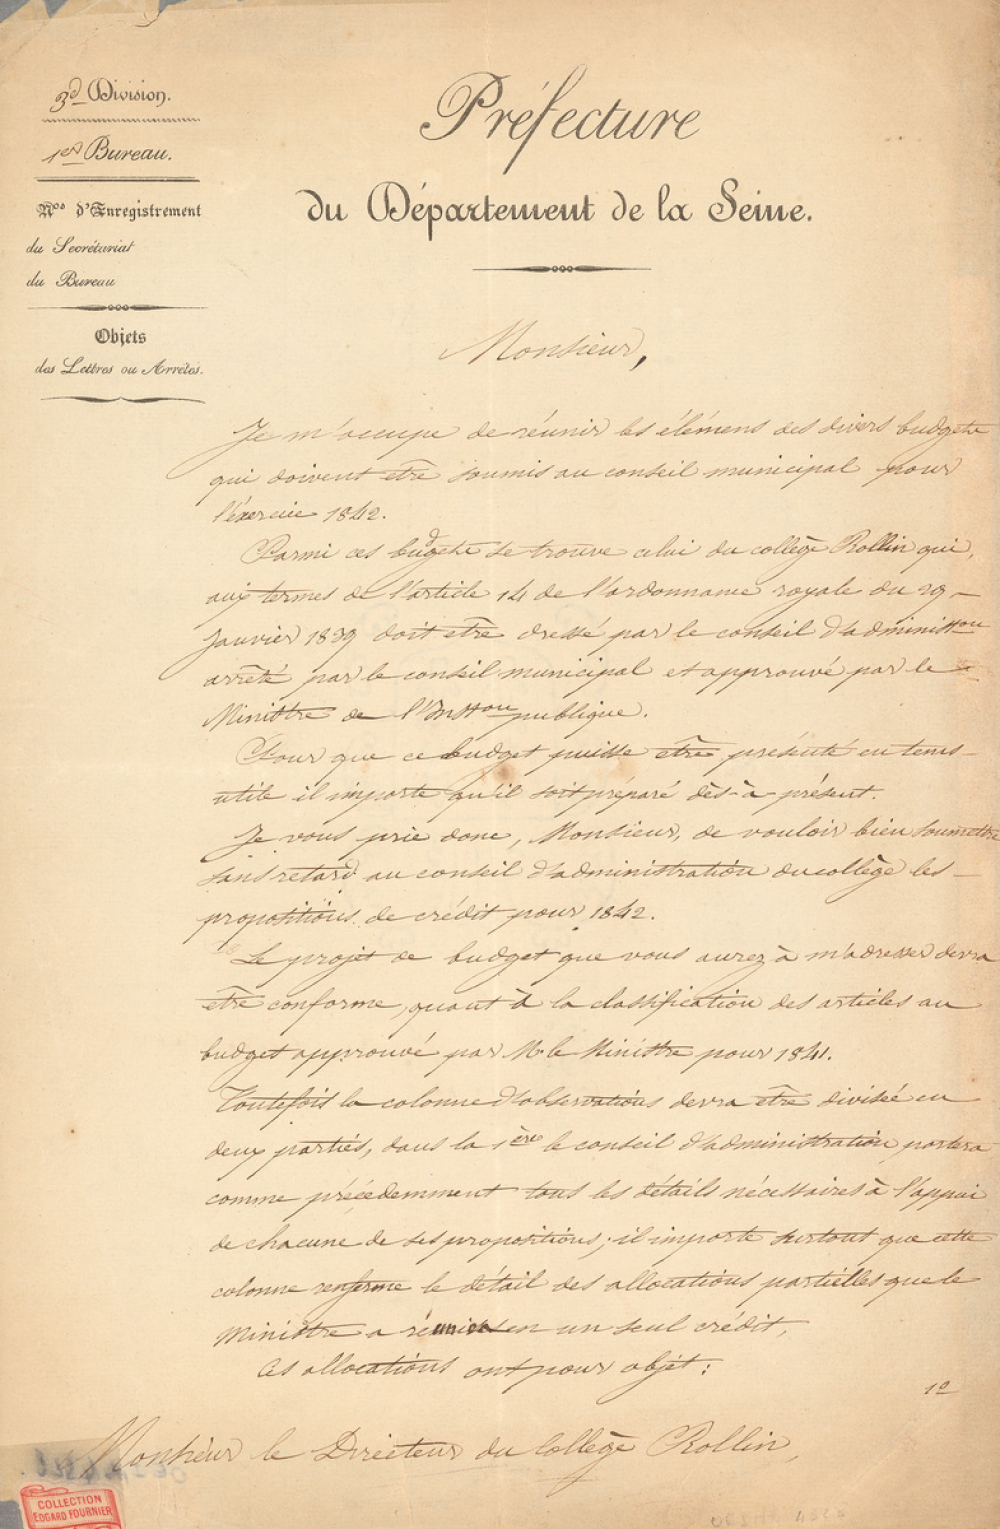 3e Division.
1er Bureau.
Nos d'Enregistrement
du Secrétariat
du Bureau
Objets
des Lettres ou Arrêtés.
Préfecture
du Département de la Seine.
Monsieur,
Je m'occupe de réunir les élémens des divers budgets
qui doivent être soumis au conseil municipal pour
l'exercice 1842.
Parmi ces budgets se trouve celui du collège Rollin qui,
aux termes de l'article 14 de l'ordonnance royale du 29
Janvier 1839 doit être dressé par le conseil d'administon
arrêté par le conseil municipal et approuvé par le
Ministre de l'Inston publique.
Pour que ce budget puisse être présenté en tems
utile il importe qu'il soit préparé dès-à-présent.
Je vous prie donc, Monsieur, de vouloir bien soumettre
sans retard au conseil d'administration du collège les
propositions de crédit pour 1842.
Le projet de budget que vous aurez à m'adresser devra
être conforme, quant à la classification des articles au
budget approuvé par Mr. le Ministre pour 1841.
Toutefois la colonne d'observations devra être divisée en
deux parties, dans la 1ère le conseil d'administration portera
comme précédemment tous les détails nécessaires à l'appui
de chacune de ses propositions; il importe surtout que cette
colonne renferme le détail des allocations partielles que le
Ministre a réunies en un seul crédit,
Ces allocations ont pour objet:
1º
Monsieur le Directeur du Collège Rollin,
COLLECTION
EDGARD FOURNIER